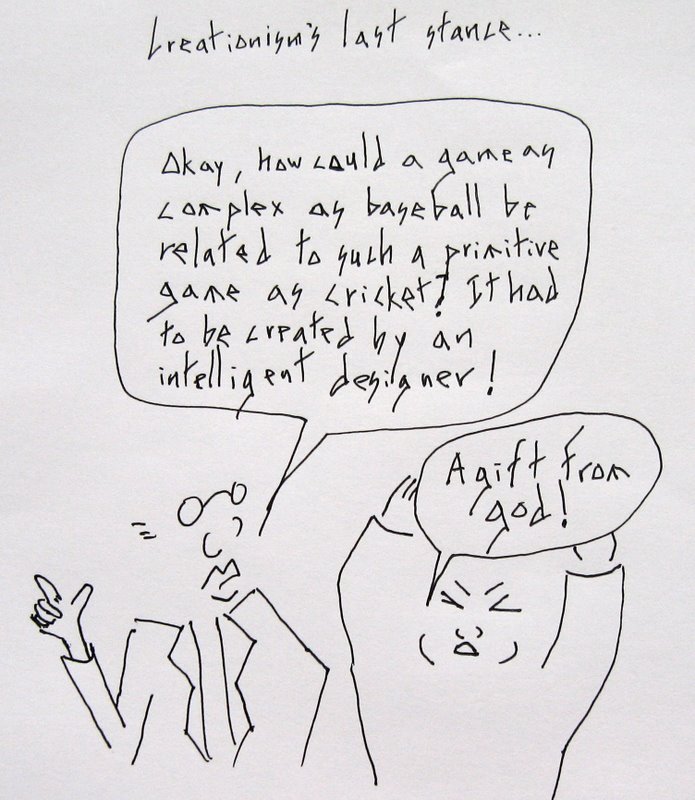 Creationism's last stance...
Okay, how could a game as
complex as baseball be
related to such a primitive
game as cricket? It had
to be created by an
intelligent designer!
A gift from
god!